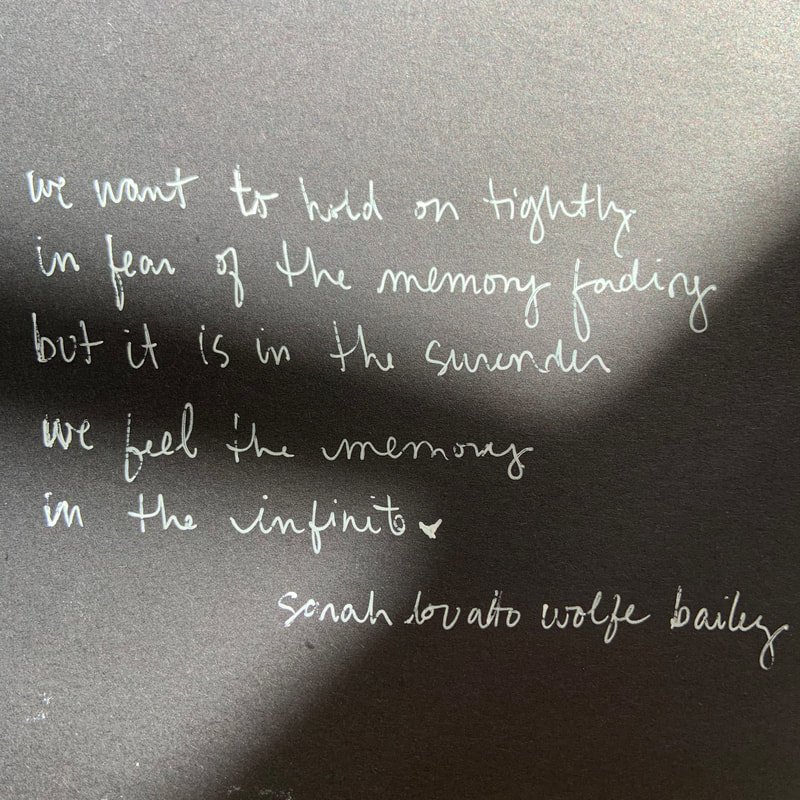 we want to hold on tightly
in fear of the memory fading
but it is in the surender
we feel the memory
in the infinite
sarah lovato wolfe bailey